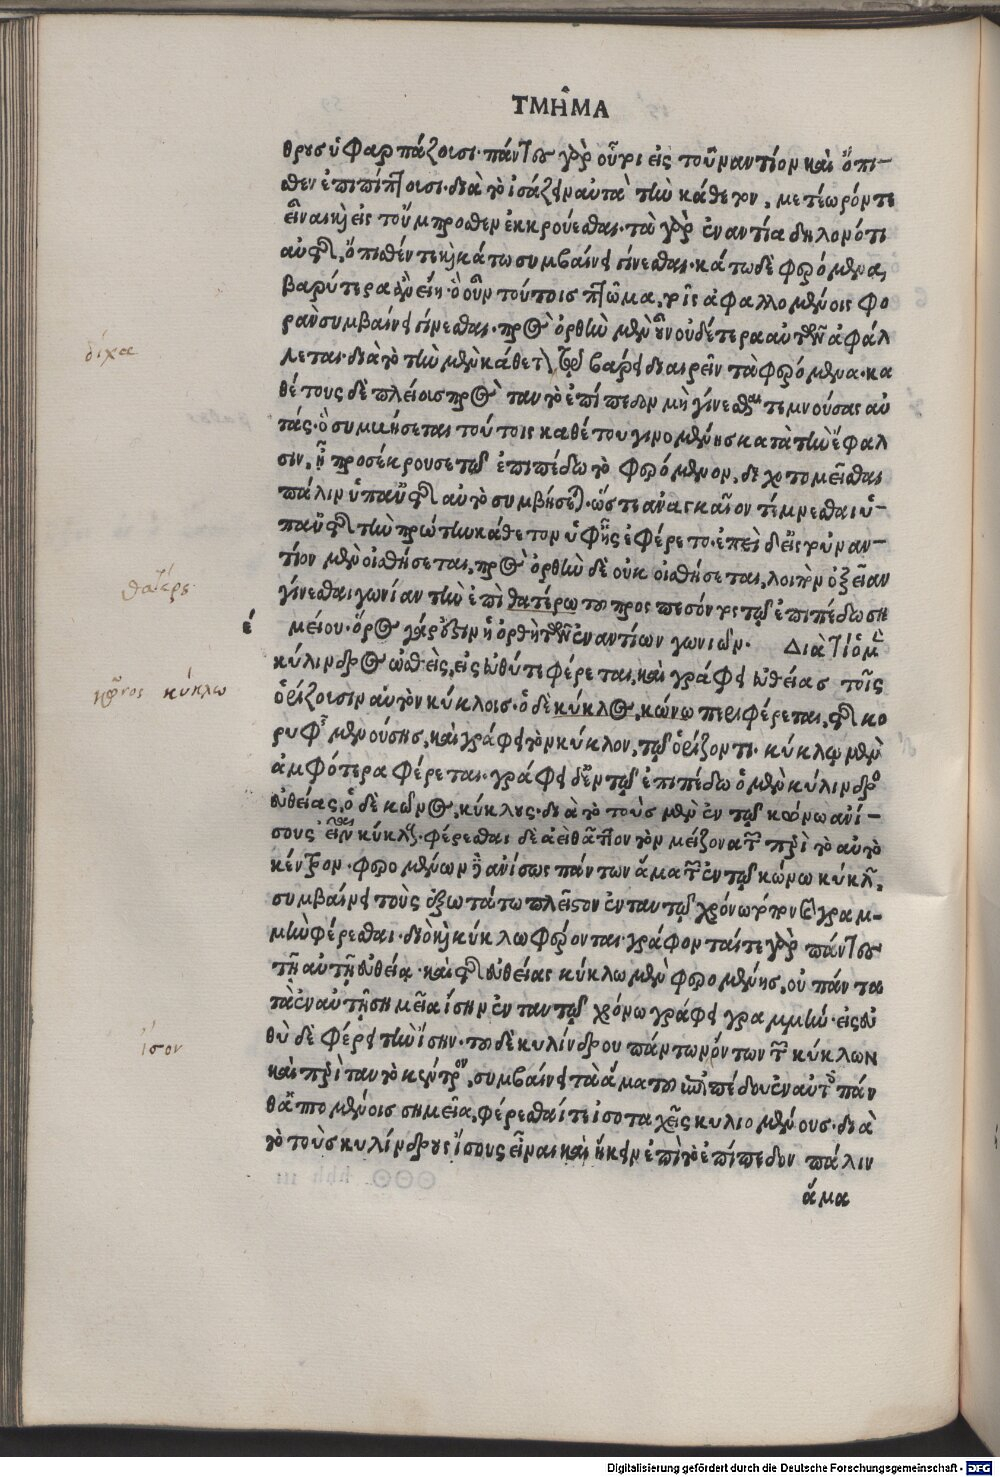 ΤΜΗ͂ΜΑ
θρους ὑφαρπάζουσι· πάντως γὰρ οὖρι εἰς τοὐναντίον καὶ ὄπι-
σθεν ἐπιπίπτουσι· διὰ τὸ ἰσάζειν αὐτὰ τὴν κάθετον, μετέωρόν τε
εἶναι καὶ εἰς τοὔμπροσθεν ἐκκρούεσθαι· τὰ γὰρ ἐναντία δηλονότι
αὐτῆς, ὄπισθέν τε καὶ κάτω συμβαίνει γίνεσθαι· κάτω δὲ φερόμενα,
βαρύτερα ἂν εἴη· ὃ οὖν τούτοις πτῶμα, τοῖς ἀφαλλομένοις φο
ρὰν συμβαίνει γίνεσθαι· πρὸς ὀρθὴν μὲν οὖν οὐδέτερα αὐτῶν ἀφάλ
λεται· διὰ τὸ τὴν μὲν κάθετον τῷ βάρει διαιρεῖν τὰ φερόμενα· κα
θέτους δὲ πλείους πρὸς ταυτὸ ἐπίπεδον μὴ γίνεσθαι τεμνούσας αὑ
τάς· ὃ συμβήσεται τούτοις καθέτου γινομένης κατὰ τὴν ἔφαλ
σιν, ᾗ προσέκρουσε τῷ ἐπιπέδῳ τὸ φερόμενον, διχοτομεῖσθαι
πάλιν ὑπ' αὐτῆς αὐτὸ συμβήσεται· ὥστε ἀναγκαῖον τέμνεσθαι ὑ-
π' αὐτῆς τὴν πρώτην κάθετον ὑφ' ἧς ἐφέρετο· ἐπεὶ δ' εἰς τοὐναν-
τίον μὲν οἰσθήσεται, πρὸς ὀρθὴν δὲ οὐκ οἰσθήσεται, λοιπὸν ὀξεῖαν
γίνεσθαι γωνίαν τὴν ἐπὶ θατέρῳ τοῦ προσπεσόντος τῷ ἐπιπέδῳ ση
μείου· ὅρος γάρ ἐστιν ἡ ὀρθὴ τῶν ἐναντίων γωνιῶν. Διὰ τί ὁ μὲν
κύλινδρος ὠσθεὶς, εἰς εὐθύ τε φέρεται, καὶ γράφει εὐθείας τοῖς
ὁρίζουσιν αὐτὸν κύκλοις· ὁ δὲ κύκλος, κώνῳ περιφέρεται, τῆς κο
ρυφῆς μενούσης, καὶ γράφει τὸν κύκλον, τῷ ὁρίζοντι· κύκλῳ μὲν
ἀμφότερα φέρεται· γράφει δ' ἐν τῷ ἐπιπέδῳ ὁ μὲν κύλινδρος
εὐθείας, ὁ δὲ κῶνος, κύκλους· διὰ τὸ τοὺς μὲν ἐν τῷ κώνῳ ἀνί-
σους εἶναι κύκλους· φέρεσθαι δὲ ἀεὶ θᾶττον τὸν μείζονα τῶν περὶ τὸ αὐτὸ
κέντρον· φερομένων δὴ ἀνίσως πάντων ἅμα τῶν ἐν τῷ κώνῳ κύκλων,
συμβαίνει τοὺς ἐξωτάτω πλεῖστον ἐν ταυτῷ χρόνῳ τόπον καὶ γραμ-
μὴν φέρεσθαι· διὸ καὶ κύκλῳ φέρονται· γράφονταί τε γὰρ πάντως
τῇ αὐτῇ εὐθείᾳ· καὶ τῆς εὐθείας κύκλῳ μὲν φερομένης, οὐ πάντα
τὰ ἐν αὐτῇ σημεῖα ἴσην ἐν ταυτῷ χρόνῳ γράφει γραμμήν· εἰς εὐ
θὺ δὲ φέρει τὴν ἴσην· τοῦ δὲ κυλίνδρου πάντων ὄντων τῶν κύκλων
καὶ περὶ ταυτὸ κέντρον, συμβαίνει τὰ ἅμα τοῦ ἐπιπέδου ἐν αὐτοῖς πάν
θ' ἁπτομένοις σημεῖα, φέρεσθαί τε ἰσοταχεῖς κυλιομένους· διὰ
τὸ τοὺς κυλίνδρους ἴσους εἶναι καὶ ἥκειν ἐπὶ τὸ ἐπίπεδον πάλιν
ἅμα
δίχα
θατέρε
έ
κῶνος κύκλω
ἴσον
Digitalisierung gefördert durch die Deutsche Forschungsgemeinschaft - DFG